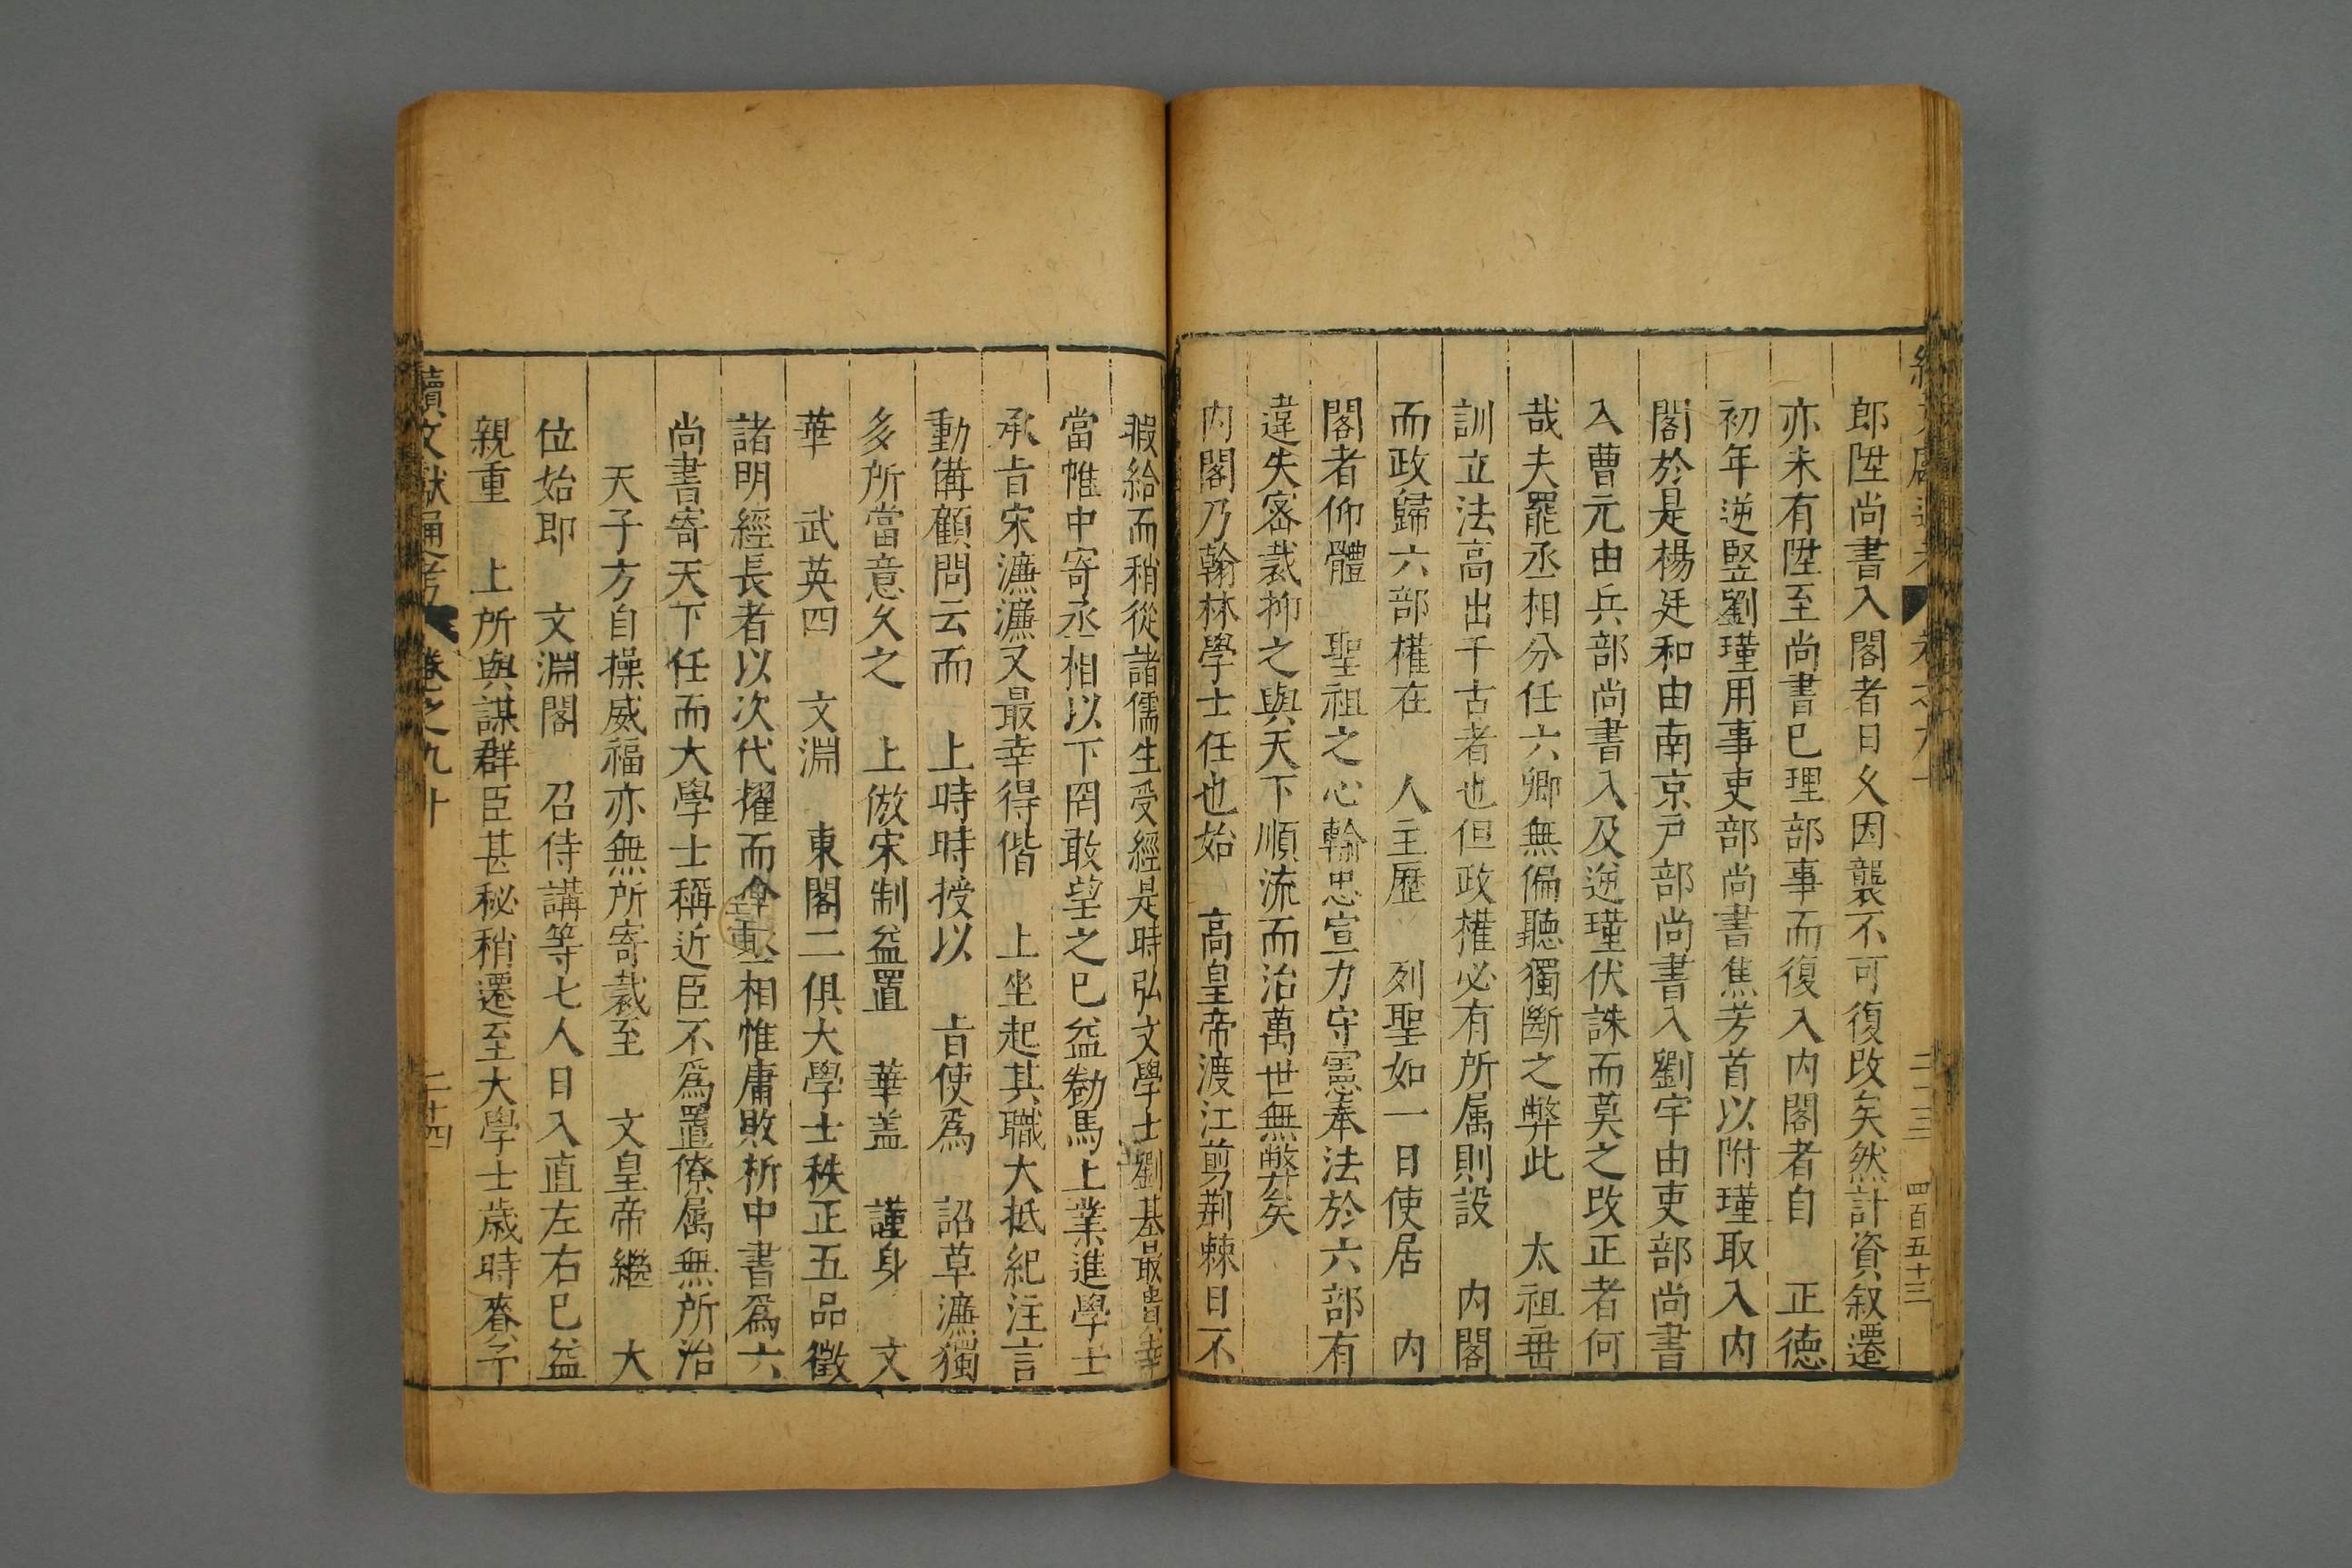 郎陞尚書入閣者日久因襲不可復改矣然計資叙遷
亦未有陞至尚書已理部事而復入内閣者自　正德
初年逆竪劉瑾用事吏部尚書焦芳首以附瑾取入内
閣於是楊廷和由南京戸部尚書入劉宇由吏部尚書
入曹元由兵部尚書入及逆瑾伏誅而莫之改正者何
哉夫罷丞相分任六卿無偏聽獨斷之弊此　太祖垂
訓立法高出千古者也但政權必有所属則設　内閣
而政歸六部權在　人主歷　列聖如一日使居　内
閣者仰體　聖祖之心輸忠宣力守憲奉法於六部有
違失密裁抑之與天下順流而治萬世無弊矣
内閣乃翰林學士任也始　高皇帝渡江剪荆棘日不
二十三 四百五十三
暇給而稍從諸儒生受經是時弘文學士劉基最貴幸
當惟中寄丞相以下罔敢望之已益勧馬上業進學士
承旨宋濂濂又最幸得偕　上坐起其職大抵紀注言
動備顧問云而　上時時授以　旨使爲　詔草濂獨
多所當意久之　上倣宋制益置　華盖　謹身　文
華　武英四　文淵　東閣二俱大學士秩正五品徵
諸明經長者以次代擢而　相惟庸敗析中書爲六
尚書寄天下任而大學士稱近臣不爲置僚属無所治
天子方自操威福亦無所寄裁至　文皇帝繼　大
位始即　文淵閣　召侍講等七人日入直左右已益
親重　上所與謀群臣甚秘稍遷至大學士歳時賚予
續文献通考 卷之九十 二十四